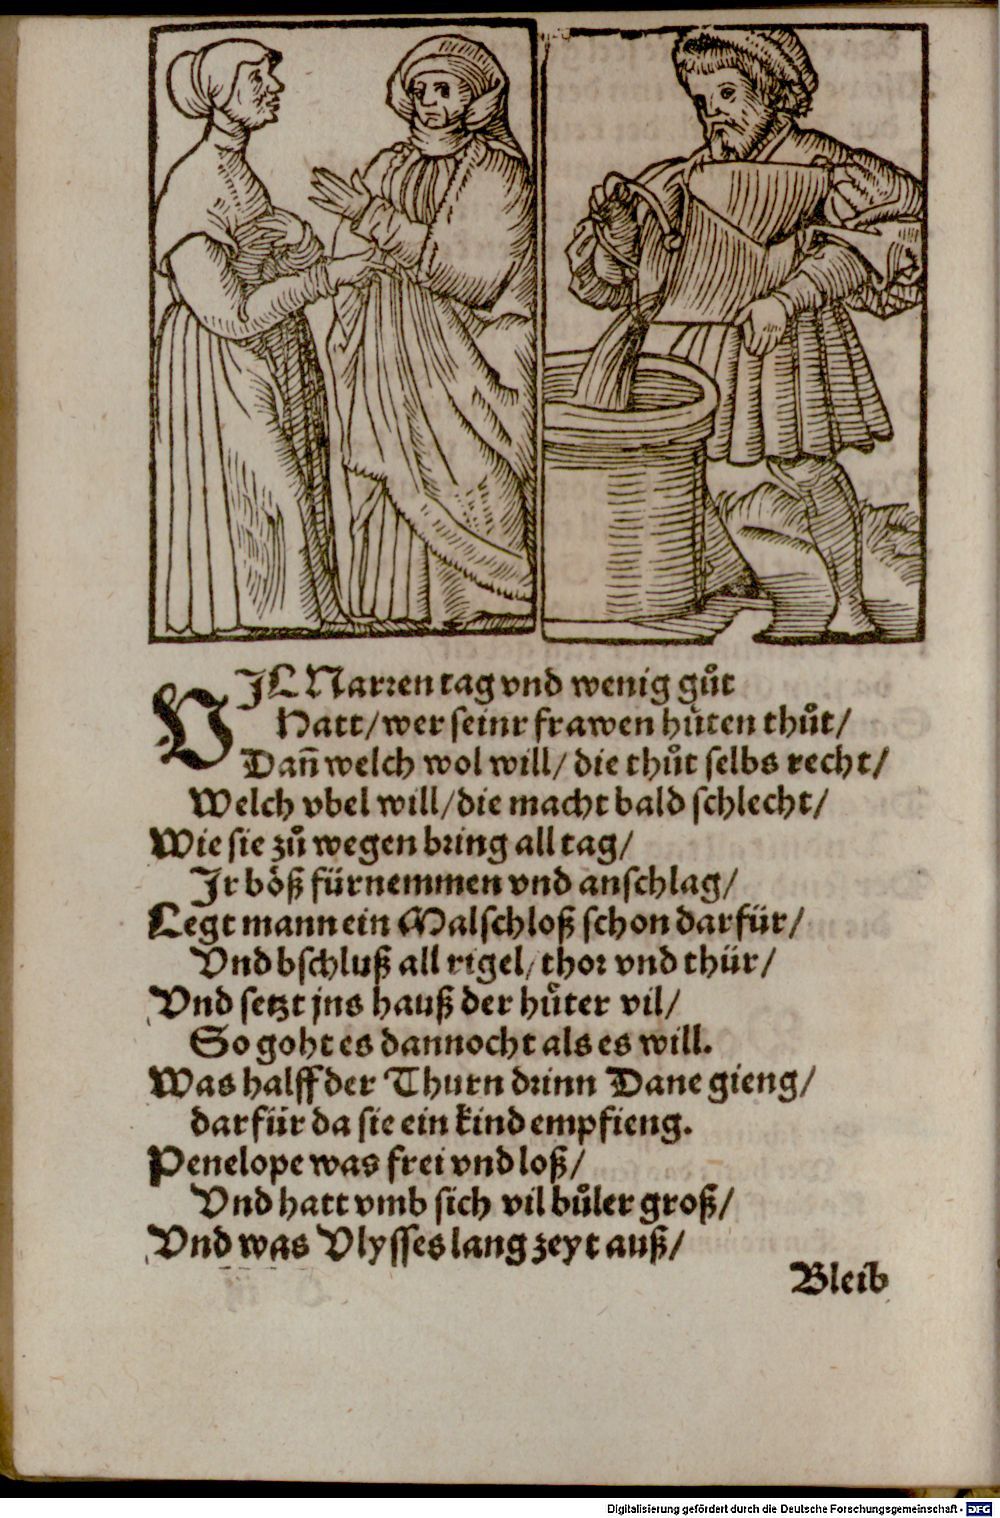 VJL Narren tag vnd wenig gůt
Hatt/ wer seinr frawen hůten thůt/
Dañ welch wol will/ die thůt selbs recht/
Welch vbel will/ die macht bald schlecht/
Wie sie zů wegen bring all tag/
Jr böß fürnemmen vnd anschlag/
Legt mann ein Malschloß schon darfür/
Vnd bschluß all rigel/ thor vnd thür/
Vnd setzt jns hauß der hůter vil/
So goht es dannocht als es will.
Was halff der Thurn drinn Dane gieng/
darfür da sie ein kind empfieng.
Penelope was frei vnd loß/
Vnd hatt vmb sich vil bůler groß/
Vnd was Vlysses lang zeyt auß/
Bleib
Digitalisierung gefördert durch die Deutsche Forschungsgemeinschaft - DFG